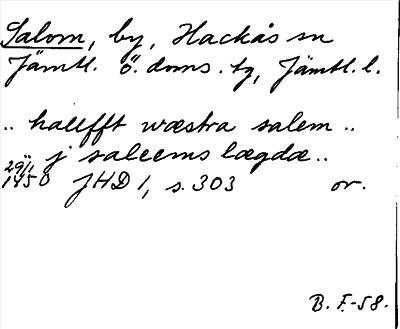 Salom, by, Hackås sn
Jämtl. ö. doms. tg, Jämtl. l.
.. halfft wæstra salem ..
.. j saleems lægdæ ..
29/1 1450 JHD 1, s. 303 or.
B. F.-58.